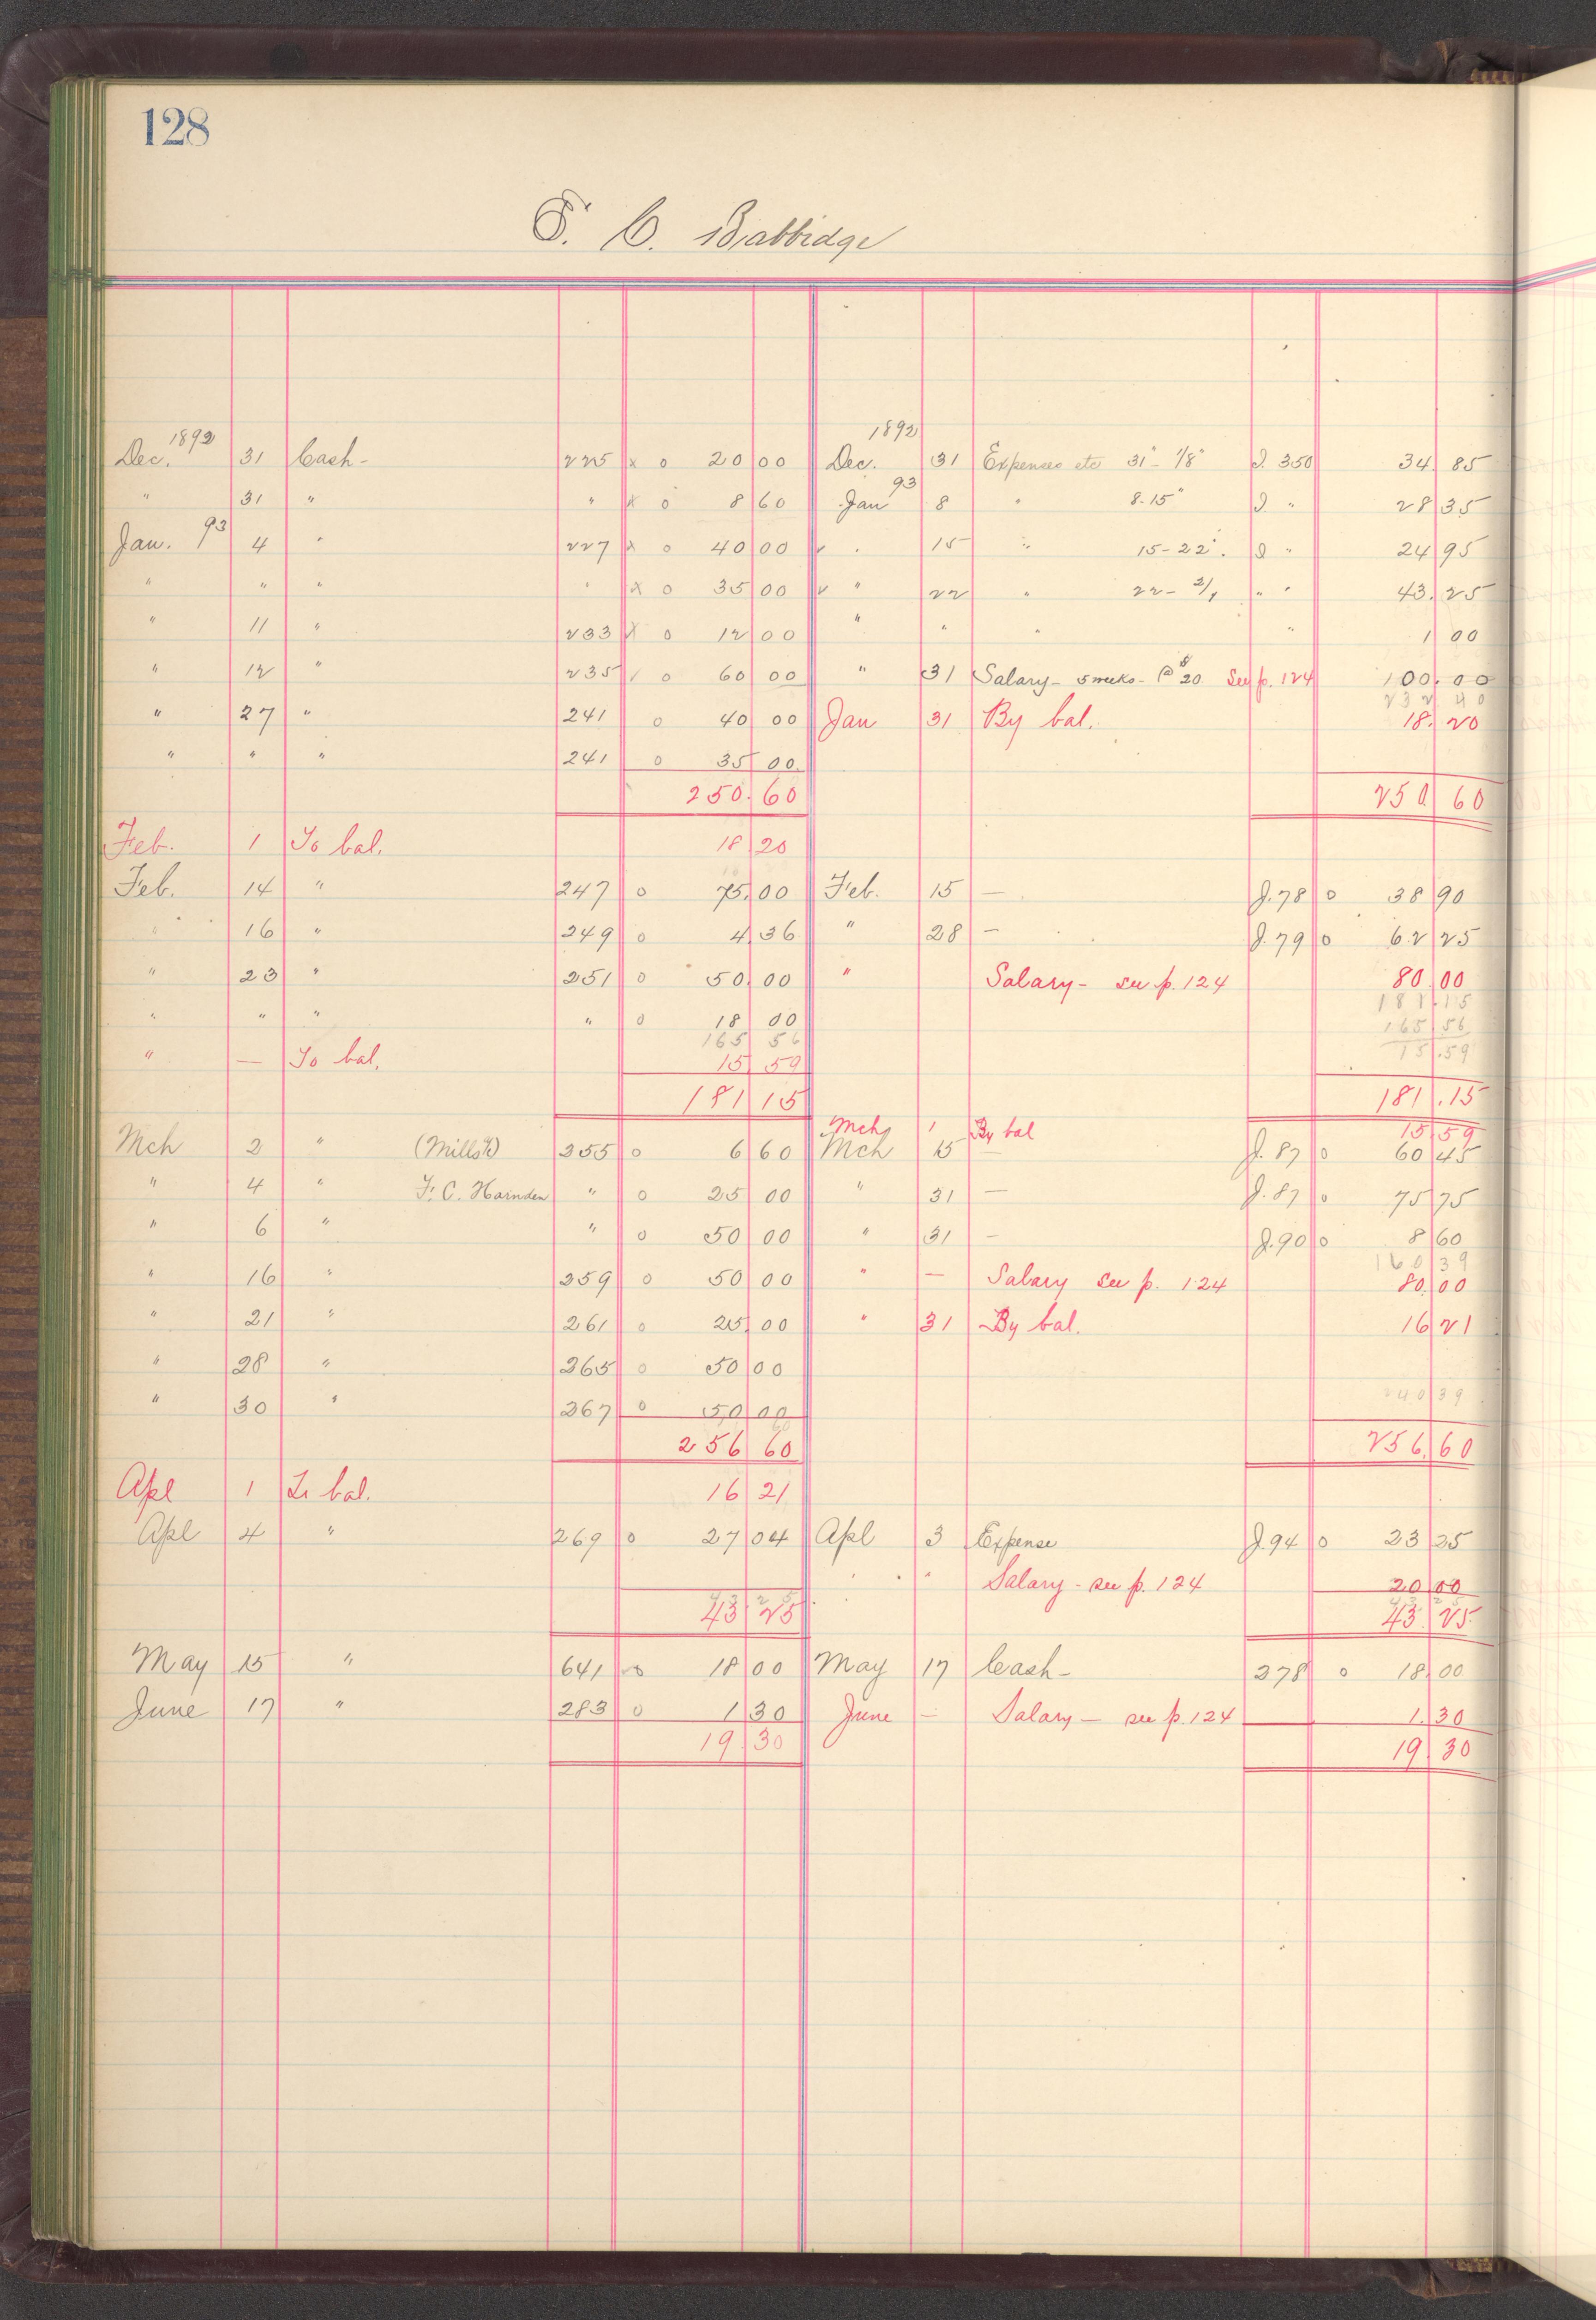 128
F. C. Babbidge
1892 1892
Dec. 31 Cash - 225 x o 20 00 Dec. 31 Expenses etc 31" - 1/8" J. 350 34. 85
" 31 " " x o 8 60 Jan 93 8 " 8-15" J. " 28 35
Jan. 93 4 " 227 x o 40 00 " 15 " 15-22". J " 24 95
" " " " x o 35 00 " 22 " 22 - 2/1 " " 43. 25
" 11 " 233 x o 12 00 " " " " 1 00
" 12 " 235 / o 60 00 " 31 Salary - 5 weeks - @ $20 See p. 124 100. 00
232 40
" 27 " 241 o 40 00 Jan 31 By bal. 18. 20
" " " 241 o 35 00
250. 60 250 60
Feb. 1 To bal. 18 20
Feb. 14 " 247 o 75. 00 Feb. 15 — J. 78 o 38 90
" 16 " 249 o 4 36 " 28 — J. 79 o 62 25
" 23 " 251 o 50. 00 " Salary - see p. 124 80. 00
181 15
" " " " o 18 00 165 56
165 56 15. 59
" — To bal. 15 59
181 15 181. 15
Mch 1 By bal 15 59
Mch 2 " (Mills) 255 o 6 60 Mch 15 — J. 87 o 60 45
" 4 " F. C. Harnden " o 25 00 " 31 — J. 87 o 75 75
" 6 " " o 50 00 " 31 — J. 90 o 8 60
160 39
" 16 " 259 o 50 00 " — Salary see p. 124 80. 00
" 21 " 261 o 25. 00 " 31 By bal. 16 21
" 28 " 265 o 50 00
240 39
" 30 " 267 o 50 00
256 60 256. 60
Apl 1 To bal. 16 21
Apl 4 " 269 o 27 04 Apl 3 Expense J. 94 o 23 25
" " Salary - see p. 124 20 00
43 25 43. 25
May 15 " 641 o 18 00 May 17 Cash - 278 o 18. 00
June 17 " 283 o 1 30 June — Salary — see p. 124 1. 30
19. 30 19. 30